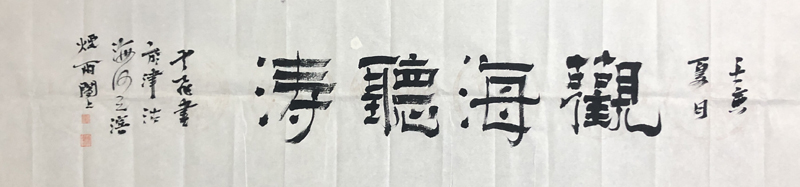 壬寅
夏日
觀海聽涛
書
於津沽
海河之濱
煙雨閣上